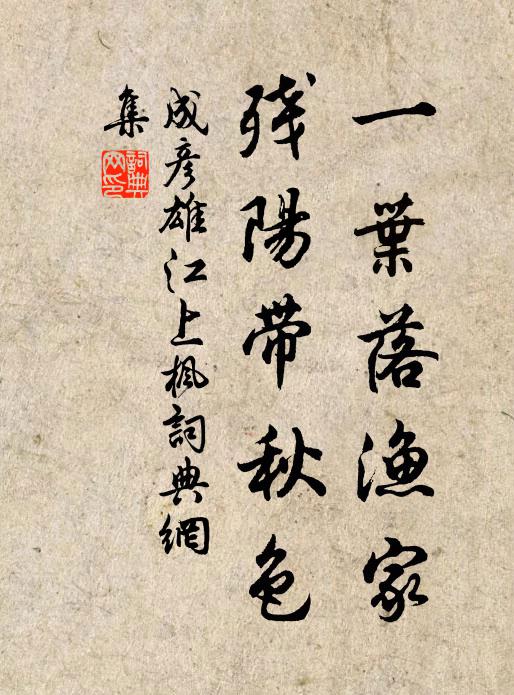 一葉落漁家
殘陽帶秋色
成彦雄江上楓詞典網
集
詞典
网印